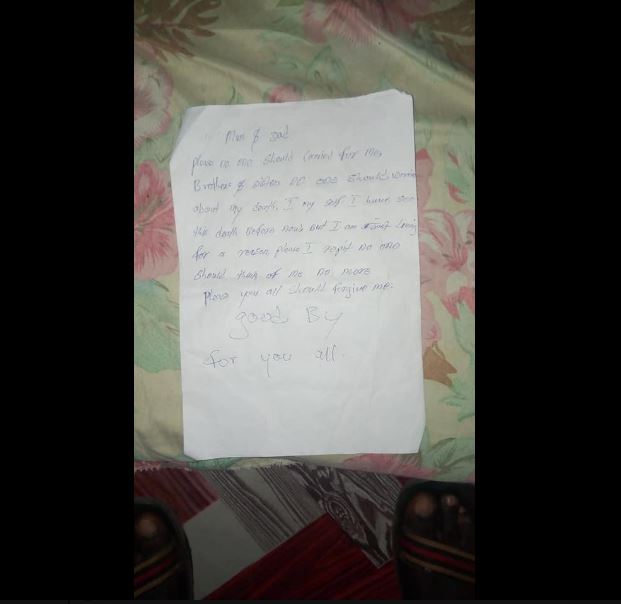 Mom & dad
please no one should for me,
Brothers & sisters NO one should
about my death. I my self I have seen
this death before now but I am just living
for a reason, please I repit NO one
should think of me no more
please you all should forgive me.
good By
for you all.